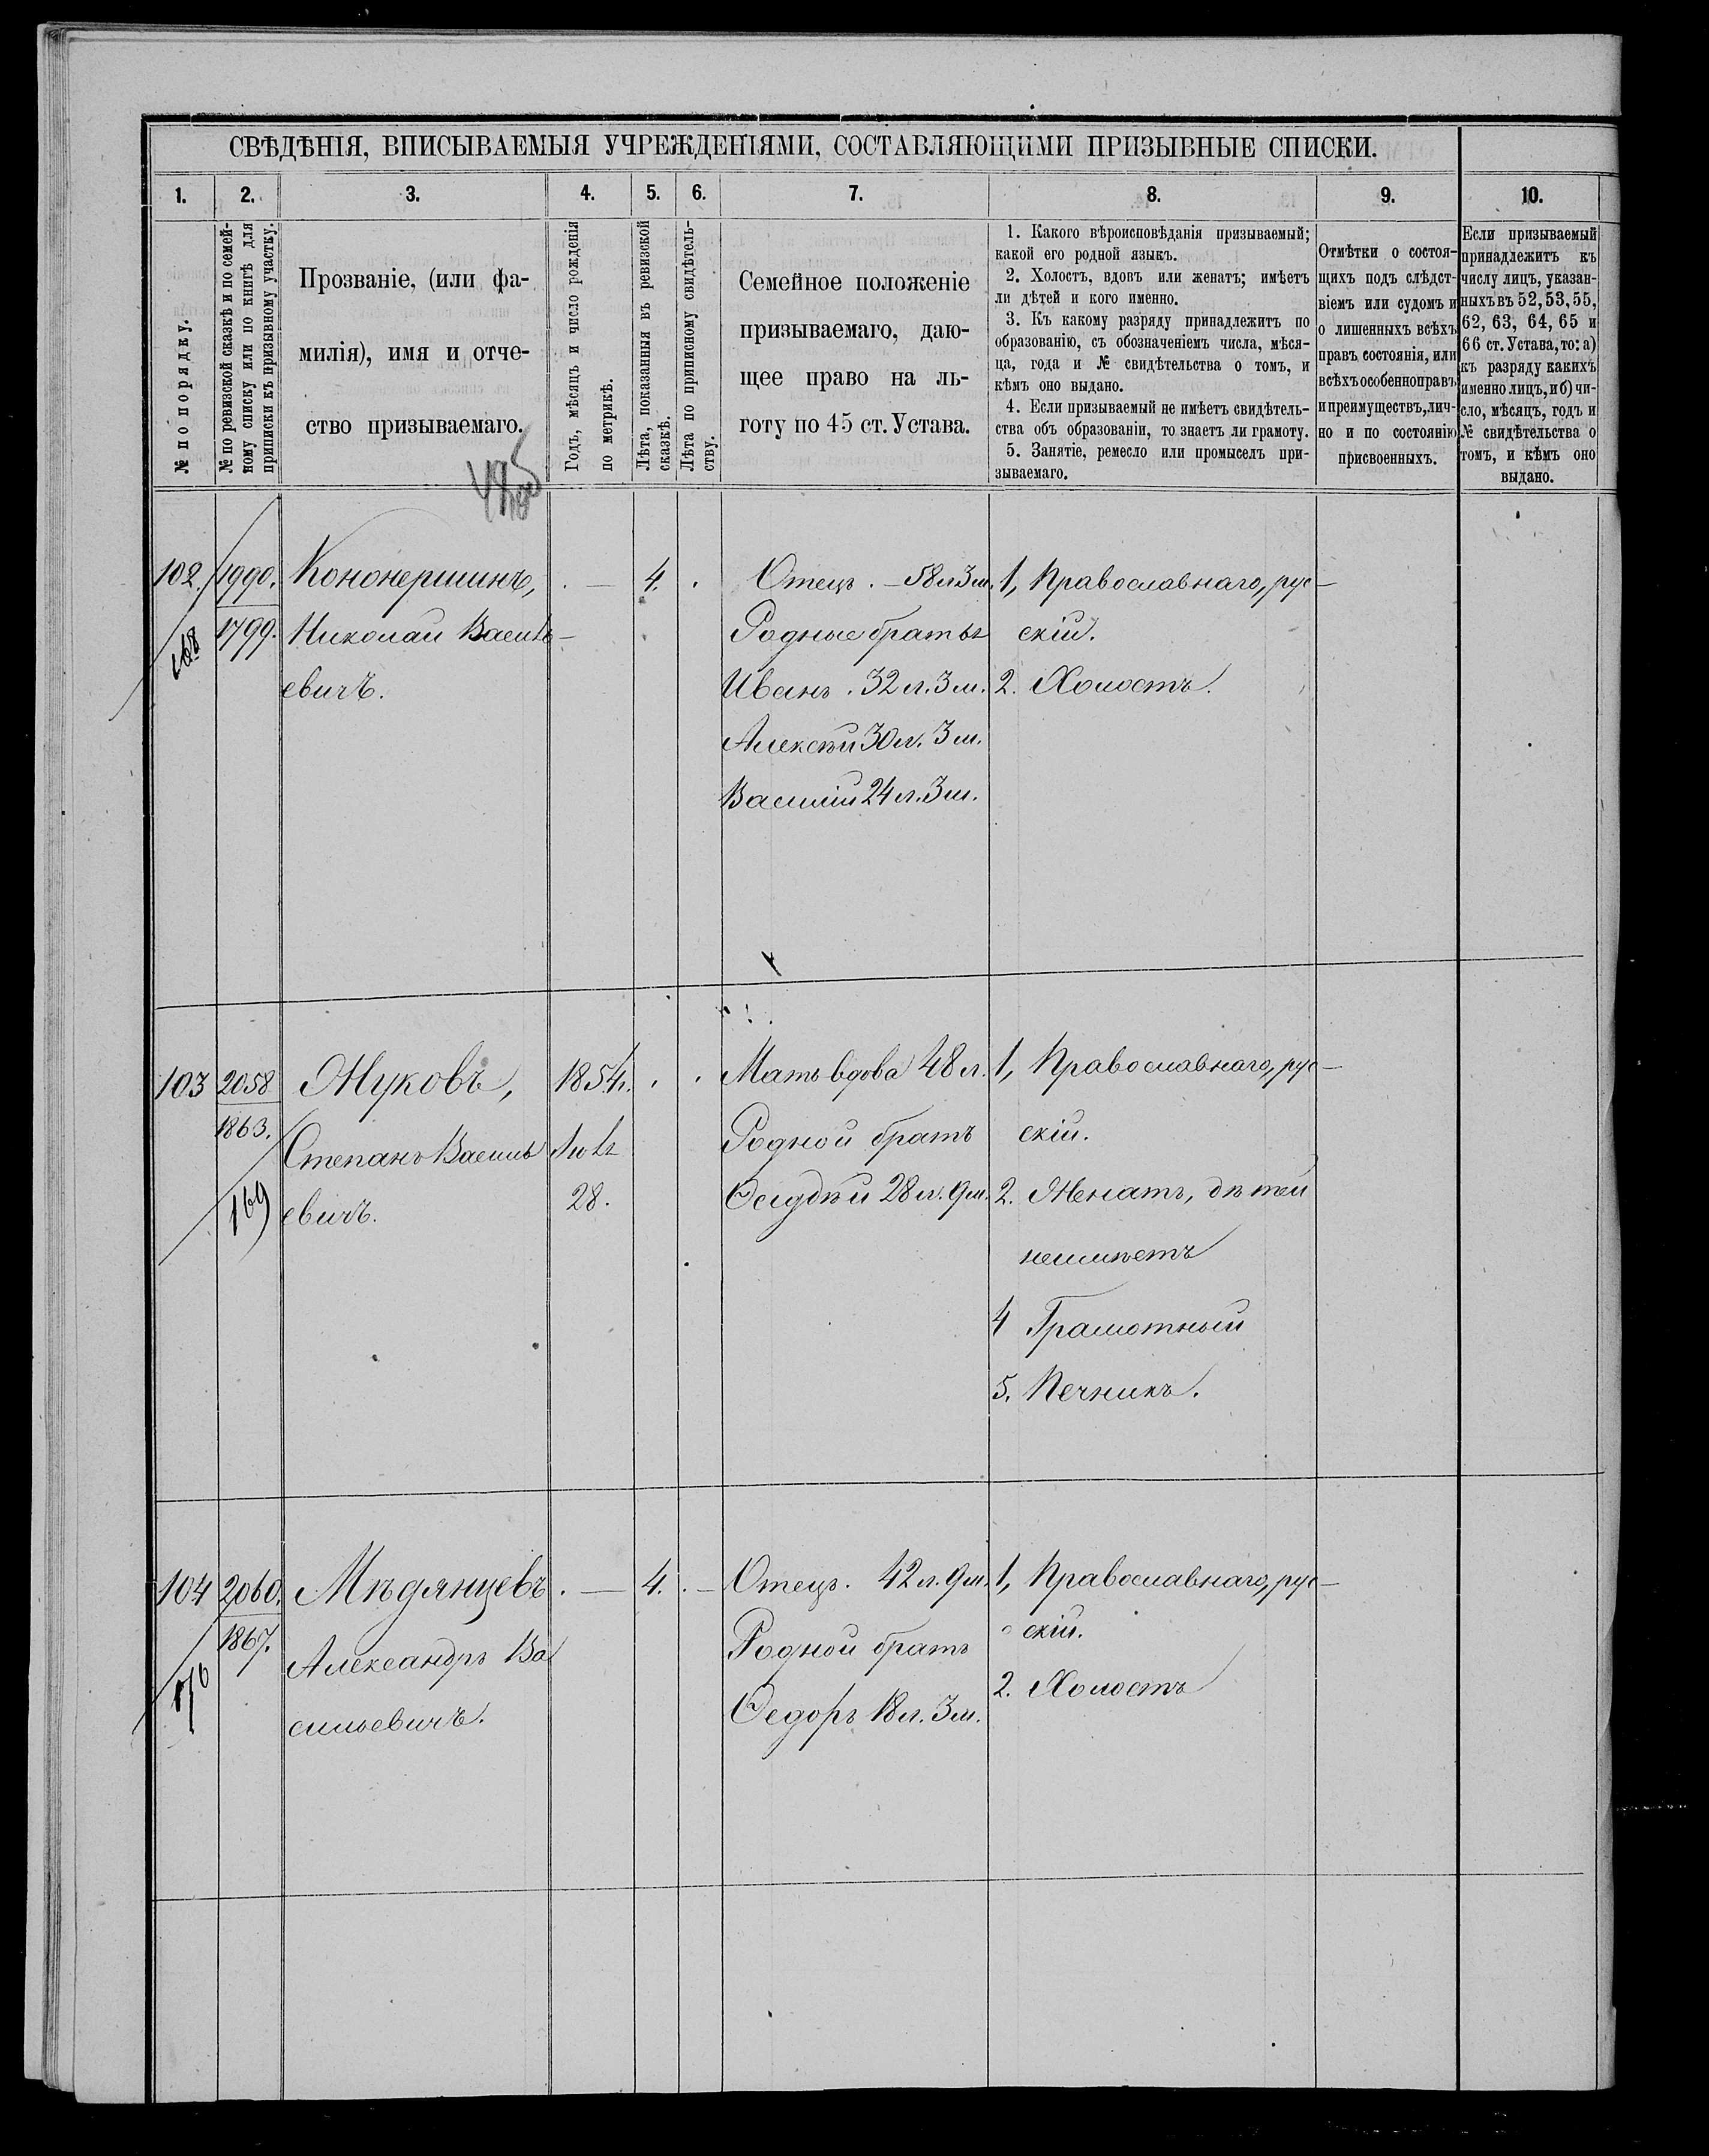 СВѢДѢНІЯ, ВПИСЫВАЕМЫЯ УЧРЕЖДЕНІЯМИ, СОСТАВЛЯЮЩИМИ ПРИЗЫВНЫЕ СПИСКИ.
1.
2.
3.
4.
5.
6.
7.
8.
9.
10.
№ по порядку.
№ по ревизской сказкѣ и по семей-
ному списку или по книгѣ для
приписки къ призывному участку.
Прозваніе, (или фа-
милія), имя и отче-
ство призываемаго.
Годъ, мѣсяцъ и число рожденія
по метрикѣ.
Лѣта, показанныя въ ревизской
сказкѣ.
Лѣта по приписному свидѣтель-
ству.
Семейное положеніе
призываемаго, даю-
щее право на ль-
готу по 45 ст. Устава.
1. Какого вѣроисповѣданія призываемый;
какой его родной языкъ.
2. Холостъ, вдовъ или женатъ; имѣетъ
ли дѣтей и кого именно.
3. Къ какому разряду принадлежитъ по
образованію, съ обозначеніемъ числа, мѣся-
ца, года и № свидѣтельства о томъ, и
кѣмъ оно выдано.
4. Если призываемый не имѣетъ свидѣтель-
ства объ образованіи, то знаетъ ли грамоту.
5. Занятіе, ремесло или промыселъ при-
зываемаго.
Отмѣтки о состоя-
щихъ подъ слѣдст-
віемъ или судомъ и
о лишенныхъ всѣхъ
правъ состоянія, или
всѣхъ особенно правъ
и преимуществъ, лич-
но и по состоянію
присвоенныхъ.
Если призываемый
принадлежитъ къ
числу лицъ, указан-
ныхъ въ 52, 53, 55,
62, 63, 64, 65 и
66 ст. Устава, то: а)
къ разряду какихъ
именно лицъ, и б) чи-
сло, мѣсяцъ, годъ и
№ свидѣтельства о
томъ, и кѣмъ оно
выдано.
102.
168
1990.
1799.
Николай Василь-
евичъ.
4.
Отецъ. — 58 л 3 м.
Родные братья
Иванъ. 32 л. 3 м.
Алексѣй 30 л. 3 м.
Василій 24 л. 3 м.
1, Православнаго, рус-
скій.
2. Холостъ.
103
2058
1863.
169
Жуковъ,
Степанъ Василь
евичъ.
1854 г.
28.
Мать вдова 48 л.
Родной братъ
28 л. 9 м.
1, Православнаго, рус-
скій.
2. Женатъ, дѣтей
неимѣетъ
4 Грамотный
5. Печникъ.
104
2060.
1867.
170
Мѣдянцевъ
Александръ Ва
сильевичъ.
4.
Отецъ. 42 л. 9 м.
Родной братъ
Ѳедоръ 18 л. 3 м.
1, Православнаго, рус-
скій.
2. Холостъ